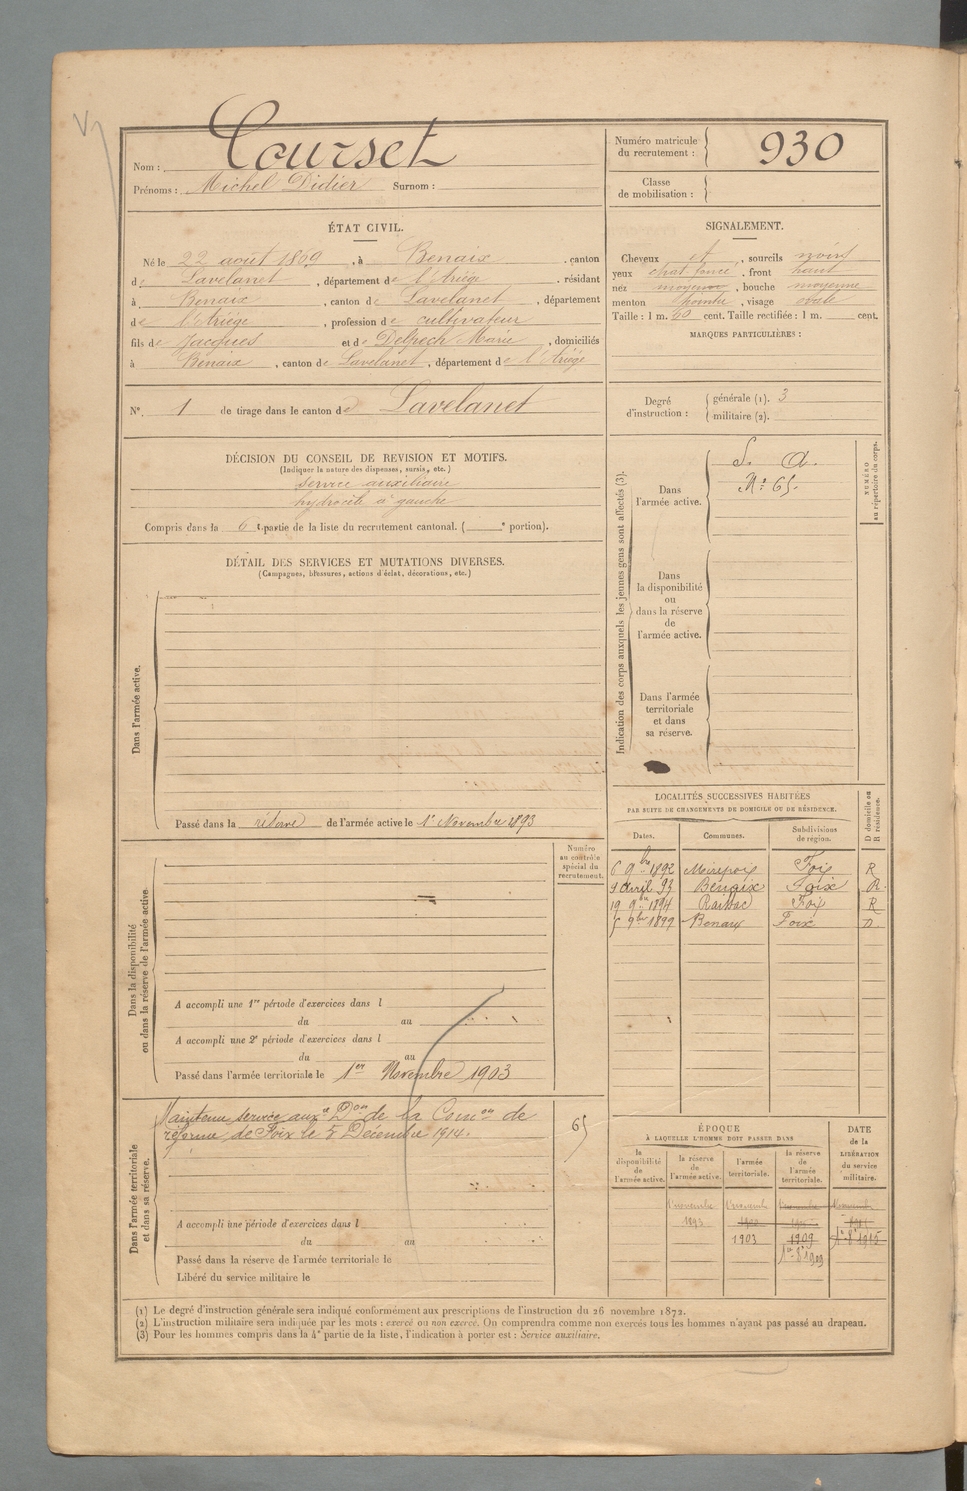 Nom : Courset
Prénoms : Michel Didier Surnom :
Numéro matricule du recrutement : 930
Classe de mobilisation :
ÉTAT CIVIL.
Né le 22 août 1869, à Benaix, canton
de Lavelanet, département de l'Ariège, résidant
à Benaix, canton de Lavelanet, département
de l'Ariège, profession de cultivateur
fils de Jacques et de Delpech Marie, domiciliés
à Benaix, canton de Lavelanet, département de l'Ariège
N°. 1 de tirage dans le canton de Lavelanet
SIGNALEMENT.
Cheveux et, sourcils noirs
yeux chat. foncé, front haut
nez moyen, bouche moyenne
menton pointu, visage ovale
Taille : 1 m. 60 cent. Taille rectifiée : 1 m. cent.
MARQUES PARTICULIÈRES :
Degré d'instruction : générale (1). 3
militaire (2).
DÉCISION DU CONSEIL DE REVISION ET MOTIFS.
(Indiquer la nature des dispenses, sursis, etc.)
service auxiliaire
hydrocèle à gauche
Compris dans la 6e partie de la liste du recrutement cantonal. ( e portion).
DÉTAIL DES SERVICES ET MUTATIONS DIVERSES.
(Campagnes, blessures, actions d'éclat, décorations, etc.)
Dans l'armée active.
Passé dans la réserve de l'armée active le 1er Novembre 1893
Indication des corps auxquels les jeunes gens sont affectés (3).
NUMÉRO au répertoire du corps.
Dans l'armée active.
S. A.
N° 65.
Dans la disponibilité ou dans la réserve de l'armée active.
Dans l'armée territoriale et dans sa réserve.
LOCALITÉS SUCCESSIVES HABITÉES
PAR SUITE DE CHANGEMENTS DE DOMICILE OU DE RÉSIDENCE.
D domicile ou R résidence.
Dates. Communes. Subdivisions de région.
6 9bre 1892 Mirepoix Foix R
9 Avril 93 Benaix Foix R.
19 9bre 1894 Raissac Foix R
5 9bre 1899 Benaix Foix D.
Dans la disponibilité ou dans la réserve de l'armée active.
Numéro au contrôle spécial du recrutement.
A accompli une 1re période d'exercices dans l
du au
A accompli une 2e période d'exercices dans l
du au
Passé dans l'armée territoriale le 1er Novembre 1903
Dans l'armée territoriale et dans sa réserve.
Maintenu service auxre Don de la Comon de
réforme de Foix le 5 Décembre 1914.
65
A accompli une période d'exercices dans l
du au
Passé dans la réserve de l'armée territoriale le
Libéré du service militaire le
ÉPOQUE
À LAQUELLE L'HOMME DOIT PASSER DANS
DATE de la LIBÉRATION du service militaire.
la disponibilité de l'armée active. la réserve de l'armée active. l'armée territoriale. la réserve de l'armée territoriale.
1 novembre 1 novemb 1 novembre
1893
1903 1909 1er 8e 1915
1er 8e 1909
(1) Le degré d'instruction générale sera indiqué conformément aux prescriptions de l'instruction du 26 novembre 1872.
(2) L'instruction militaire sera indiquée par les mots : exercé ou non exercé. On comprendra comme non exercés tous les hommes n'ayant pas passé au drapeau.
(3) Pour les hommes compris dans la 4e partie de la liste, l'indication à porter est : Service auxiliaire.